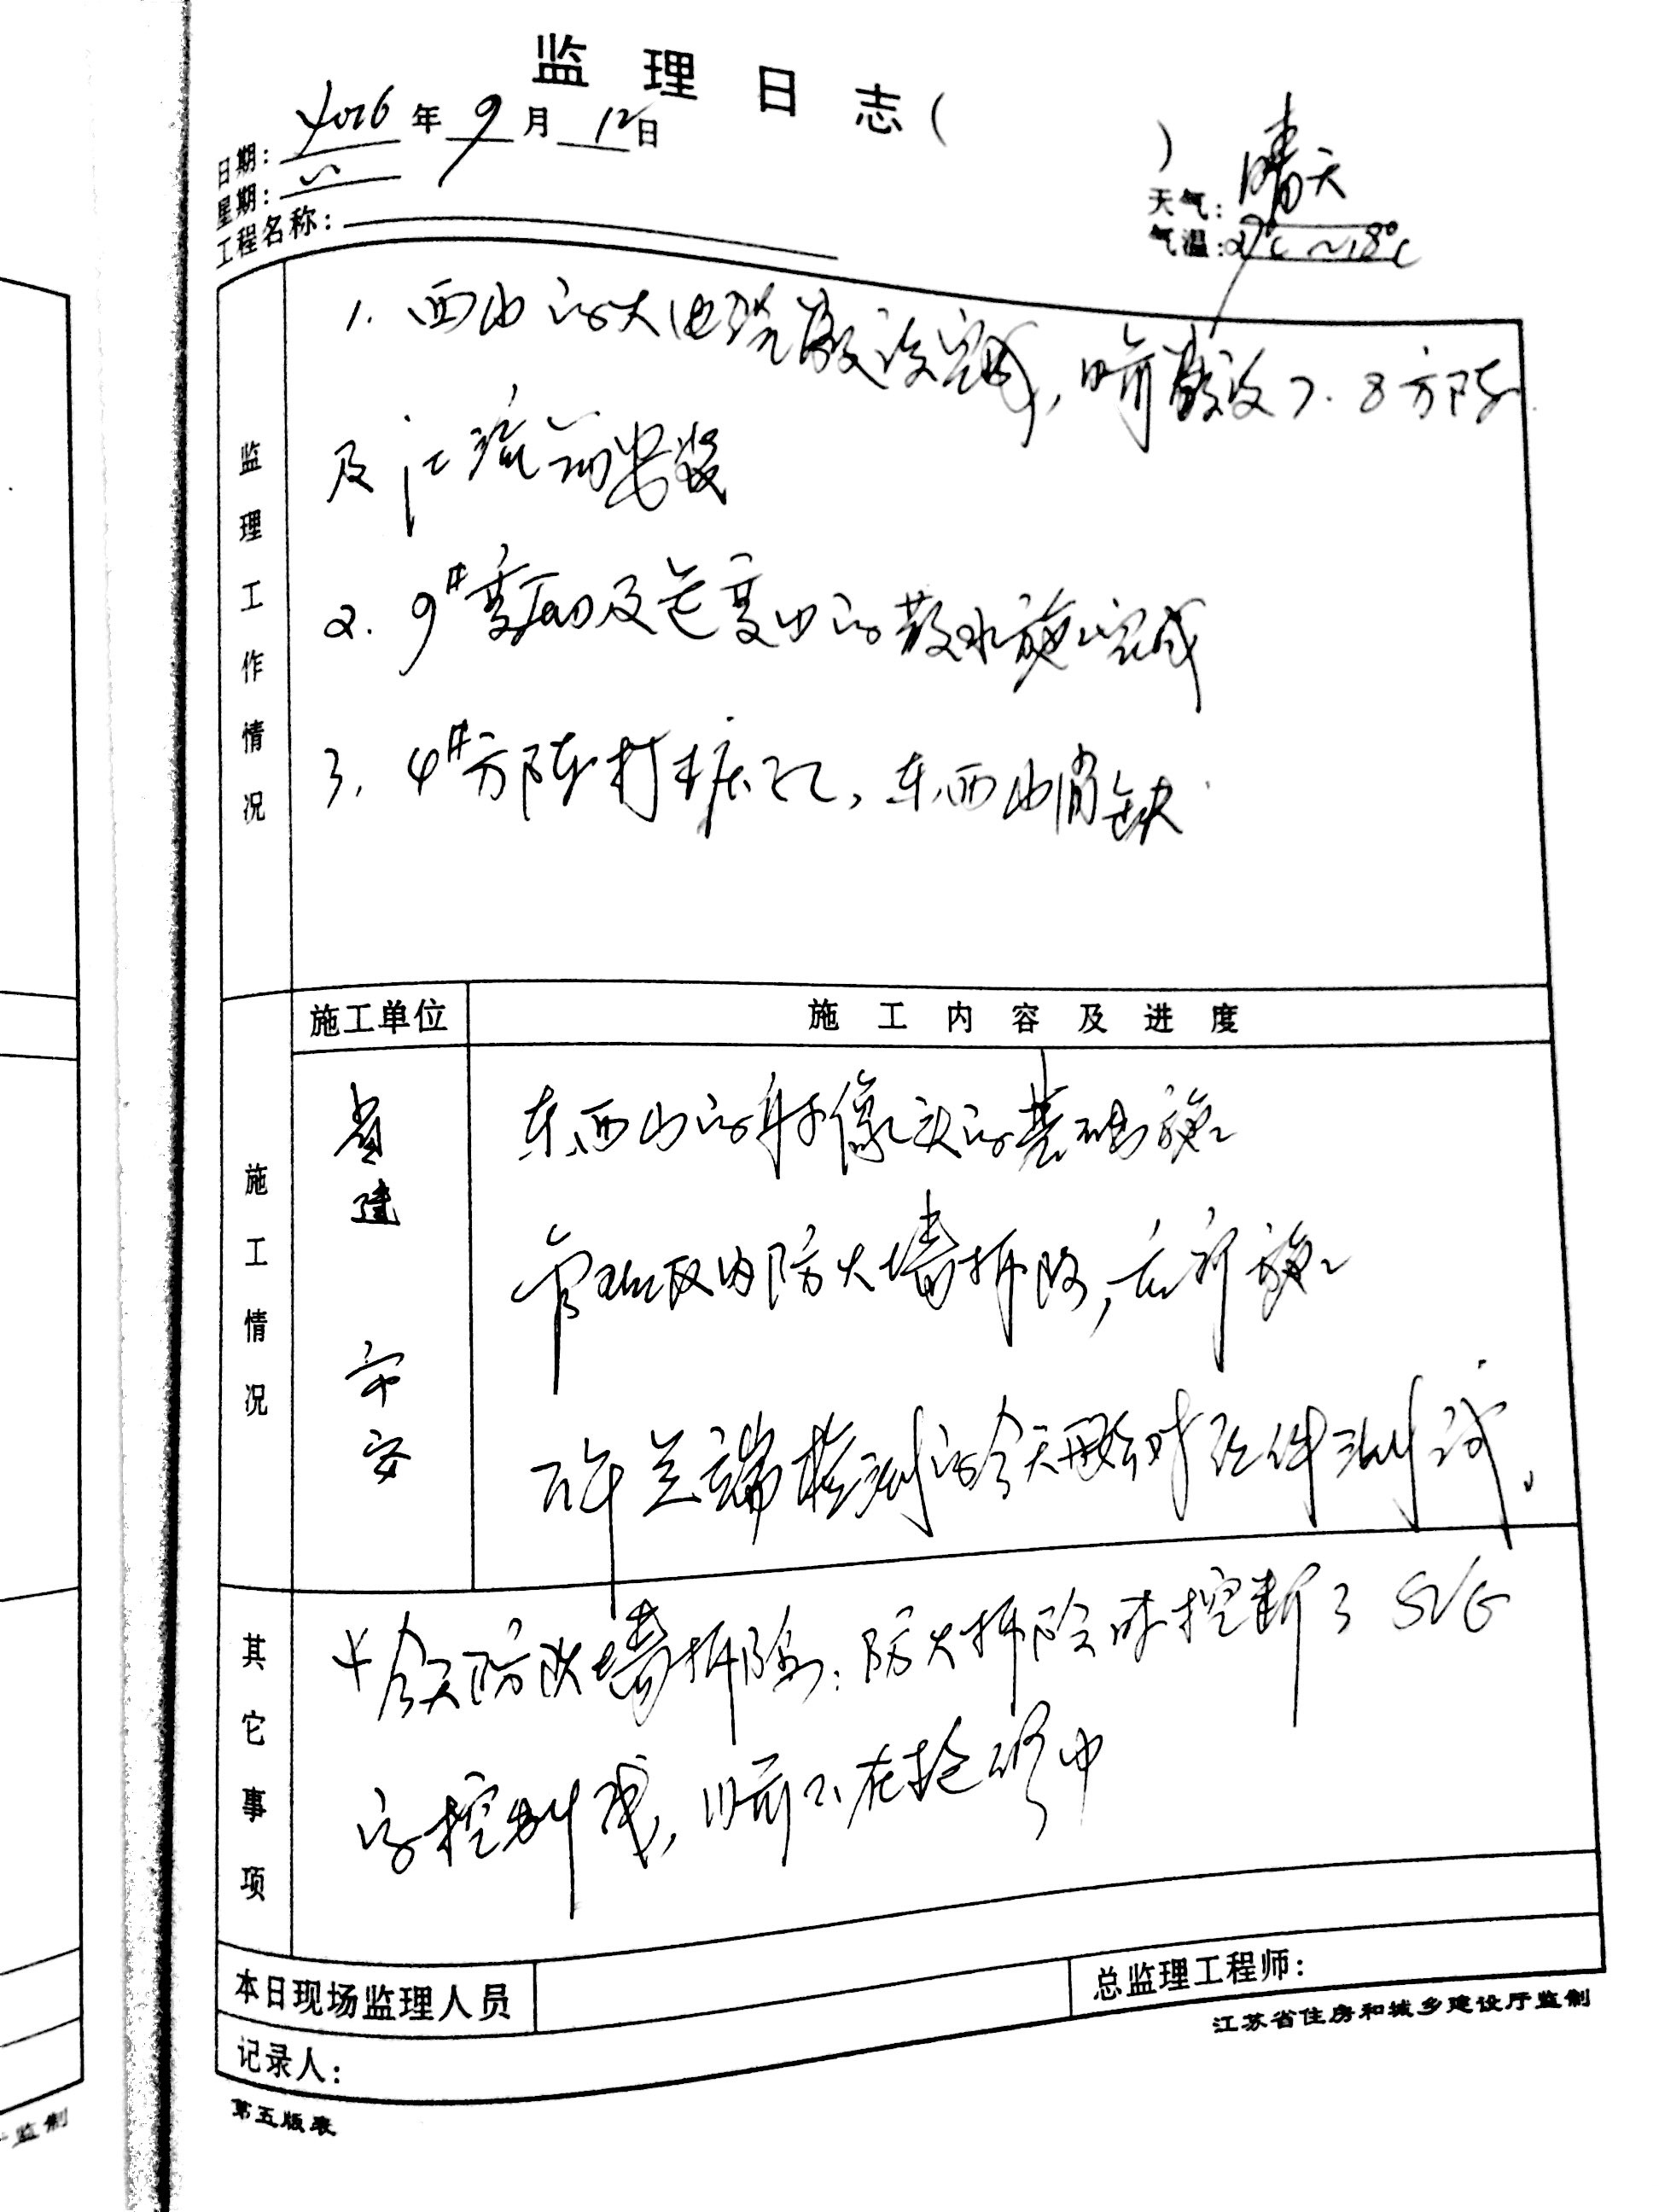 监理日志（ ）
日期：2016年9月12日
星期：一
天气：晴天
气温：27℃～18℃
工程名称：
监理工作情况
1. 西山的大电缆敷设完成，目前敷设7.8方阵
及汇流箱安装
2. 9#变及山的散水施工完成
3. 4#方阵打桩孔，东西山消缺
施工单位
施工内容及进度
施工情况
省建
东西山的射像头的基础施工
管理区内防火墙拆除，重新施工
安
检测的今天对组件测试。
其它事项
今天防火墙拆除：防火拆除时挖断了SVG
的控制线，目前正在抢修中
本日现场监理人员
总监理工程师：
记录人：
江苏省住房和城乡建设厅监制
第五版表
监制